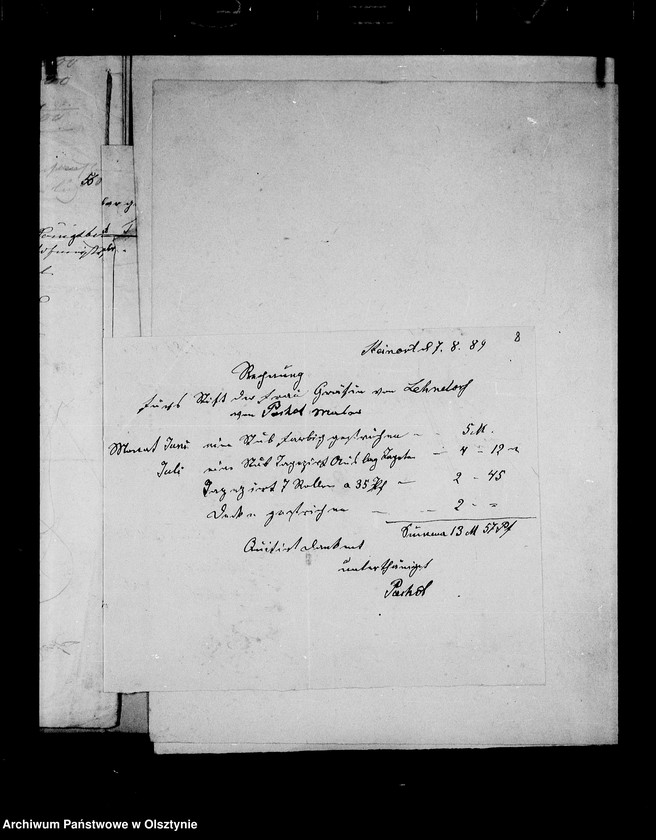 8
Steinort d 7. 8. 89
Rechnung
fürs Stift der Frau Gräfin von Lehndorf
von Peshol Maler
Monat Juni eine Stub farbig gestrichen - - 5 M.
Juli eine Stub Tapezirt - 4 - 12
Tapezirt 7 Rollen a 35 Pf - 2 - 45
Decke gestrichen - - 2 - -
Summa 13 M 57 Pf
Quitirt dankent
unterthänigst
Archiwum Państwowe w Olsztynie